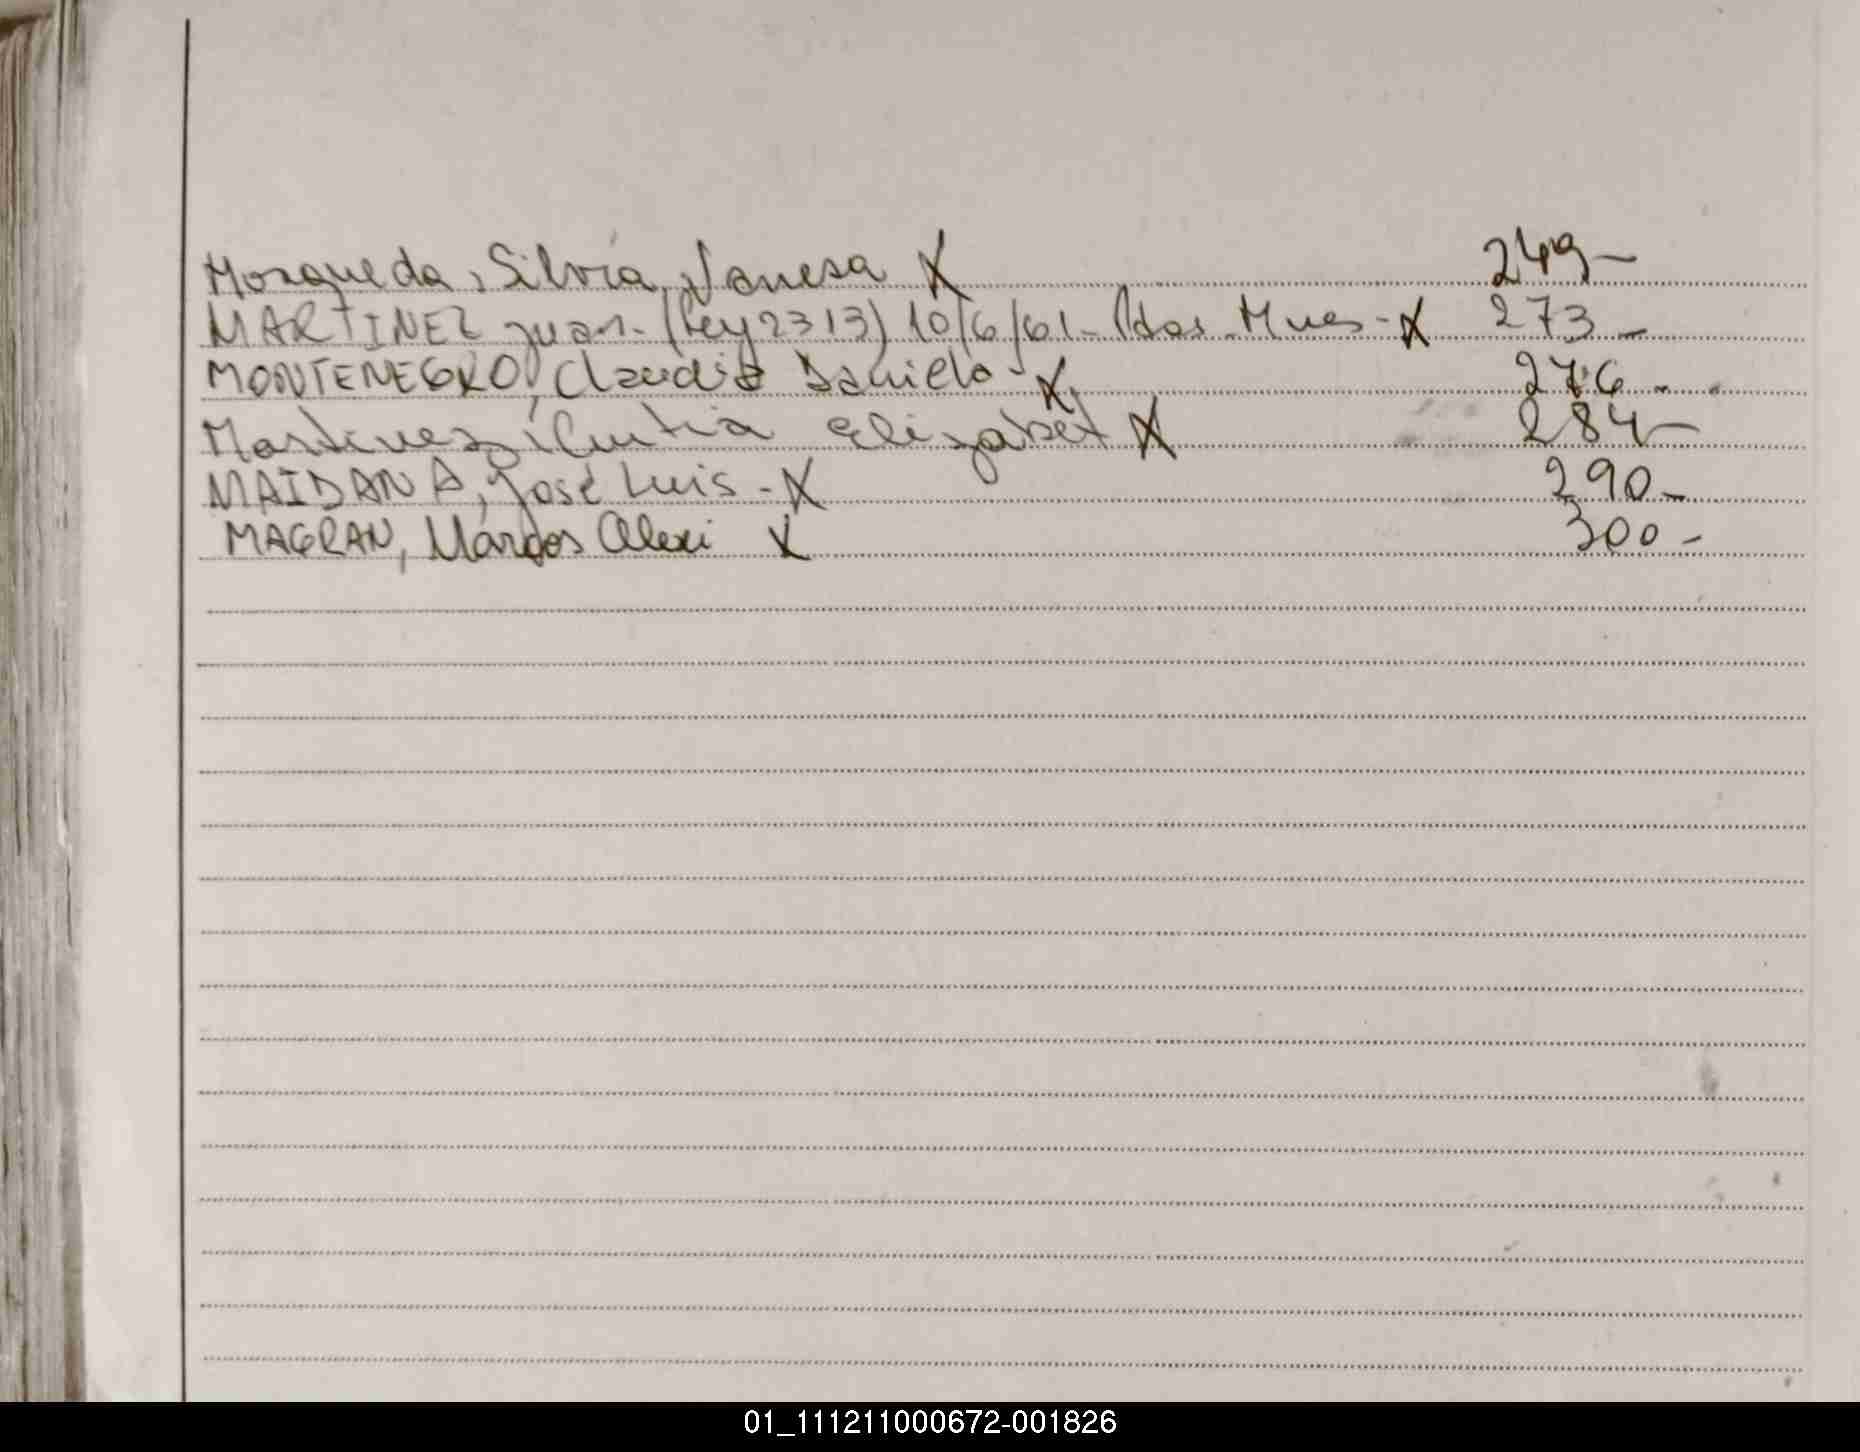 Mosqueda, Silvia, Vanesa X 249-
MARTINEZ Juan- (Ley 2313) 10/6/61- Pdas. Mnes- X 273-
MONTENEGRO, Claudia Daniela X 276-
Martinez, Cintia Elizabet X 284-
MAIDANA, José Luis - X 290-
MAGRAN, Marcos Alexi X 300-
01_111211000672-001826